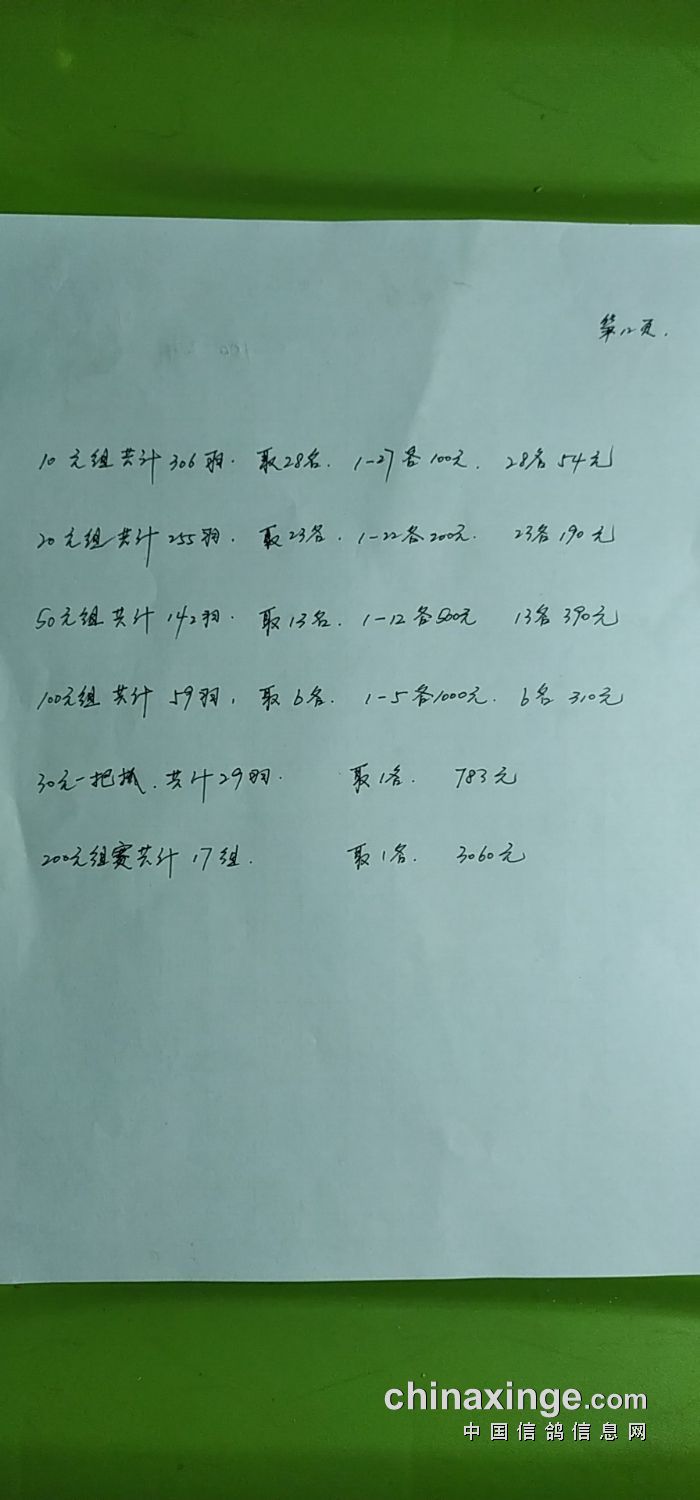 第12页.
10元组共计306羽. 取28名. 1-27各100元. 28名54元
20元组共计255羽. 取23名. 1-22各200元. 23名190元
50元组共计142羽. 取13名. 1-12各500元 13名390元
100元组共计59羽, 取6名. 1-5各1000元. 6名310元
30元一把抓. 共计29羽. 取1名. 783元
200元组赛共计17组. 取1名. 3060元
chinaxinge.com
中国信鸽信息网